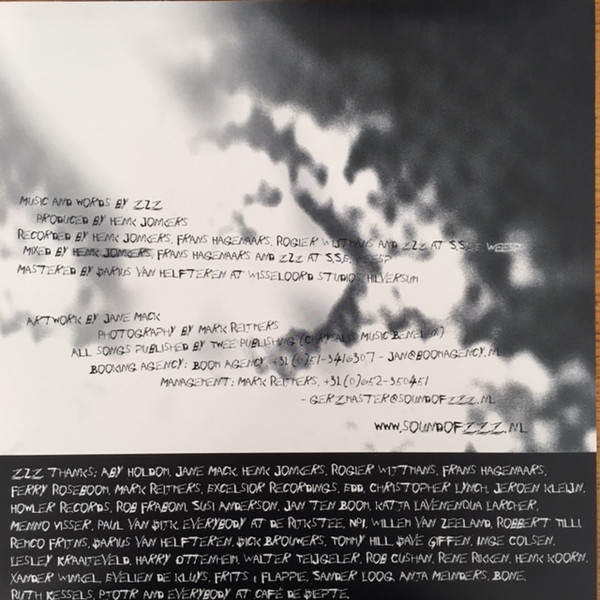 MUSIC AND WORDS BY ZZZ
PRODUCED BY HENK JONKERS
RECORDED BY HENK JONKERS, FRANS HAGENAARS, ROGIER WITTMANS AND ZZZ AT S.S.E WEESP
MIXED BY HENK JONKERS, FRANS HAGENAARS AND ZZZ AT S.S.E, WEESP
MASTERED BY DARIUS VAN HELFTEREN AT WISSELOORD STUDIOS, HILVERSUM
ARTWORK BY JANE MACK
PHOTOGRAPHY BY MARK REITMERS
ALL SONGS PUBLISHED BY TWEE PUBLISHING (CHRYSALIS MUSIC BENELUX)
BOOKING AGENCY: BOOM AGENCY - JAN@BOOMAGENCY.NL
MANAGEMENT: MARK REITMERS,
- GERZMASTER@SOUNDOFZZZ.NL
WWW.SOUNDOFZZZ.NL
ZZZ THANKS: ABY HOLDOM, JANE MACK, HENK JONKERS, ROGIER WITTMANS, FRANS HAGENAARS,
FERRY ROSEBOOM, MARK REITMERS, EXCELSIOR RECORDINGS, EDD, CHRISTOPHER LYNCH, JEROEN KLEIJN,
HOWLER RECORDS, ROB FRABOM, SUSI ANDERSON, JAN TEN BOOM, KATJA LARCHER,
MENNO VISSER, PAUL VAN DIJK, EVERYBODY AT DE RIJKSTEE, NPI, WILLEM VAN ZEELAND, ROBBERT TILLI
REMCO FRIJNS, DARIUS VAN HELFTEREN, DICK BROUWERS, TOMMY HILL, DAVE GIFFEN, INGE COLSEN,
LESLEY KRAAITEVELD, HARRY OTTENHEIM, WALTER TEIJGELER, ROB CUSHAN, RENE RIKKEN, HENK KOORN,
XANDER WINKEL, EVELIEN DE KLUYS, FRITS, FLAPPIE, SANDER LOOG, ANJA MEINDERS, BONE,
RUTH KESSELS, PJOTR AND EVERYBODY AT CAFÉ DE DIEPTE,